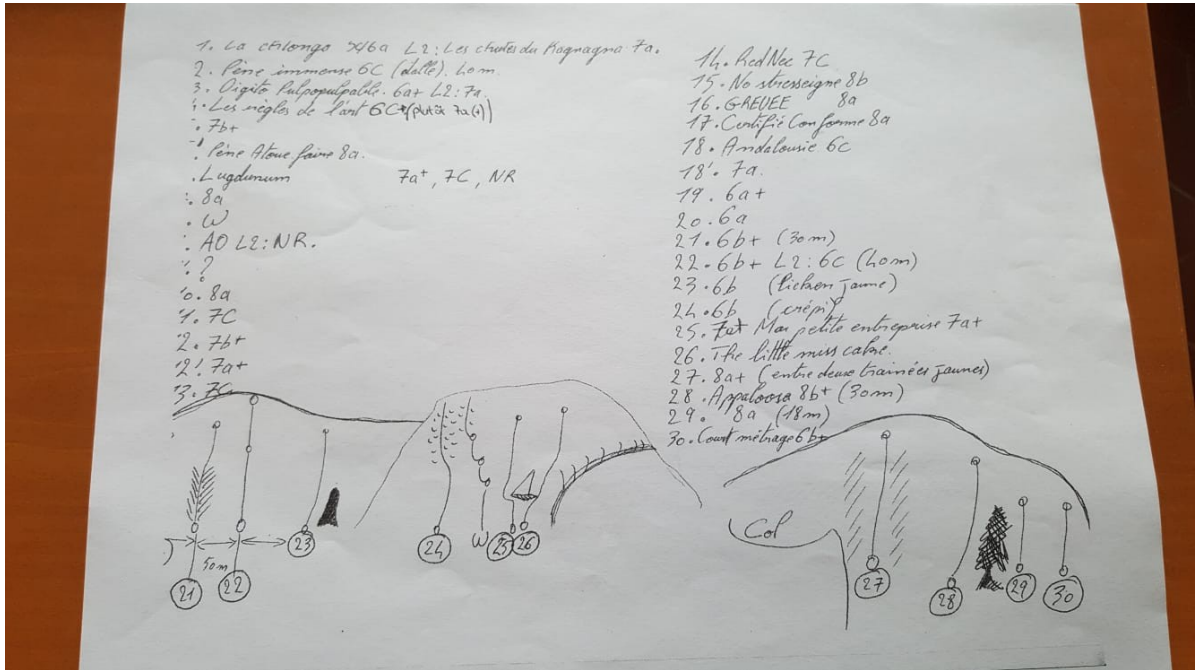 1. La chilongo 6a L2: Les chutes du Kagnagna 7a.
2. Pène immense 6C (dalle). 40m.
3. Digito Pulpopulpable. 6a+ L2: 7a.
. Les règles de l'art 6C+ (plutôt 7a(+))
. 7b+
. Pène Atoue faire 8a.
. Lugdunum 7a+, 7C, NR
. 8a
. W
. AO L2: NR.
. ?
0. 8a
1. 7C
2. 7b+
2'. 7a+
3. 7C
14. Red Nec 7C
15. No stresseigne 8b
16. GREVEE 8a
17. Certifié Conforme 8a
18. Andalousie 6c
18'. 7a.
19. 6a+
20. 6a
21. 6b+ (30m)
22. 6b+ L2: 6C (40m)
23. 6b (lichen jaune)
24. 6b (crépi)
25. Ma petite entreprise 7a+
26. The little miss calne.
27. 8a+ (entre deux trainées jaunes)
28. Appaloosa 8b+ (30m)
29. 8a (18m)
30. Court métrage 6b+
50m
21
22
23
24
W
25
26
Col
27
28
29
30